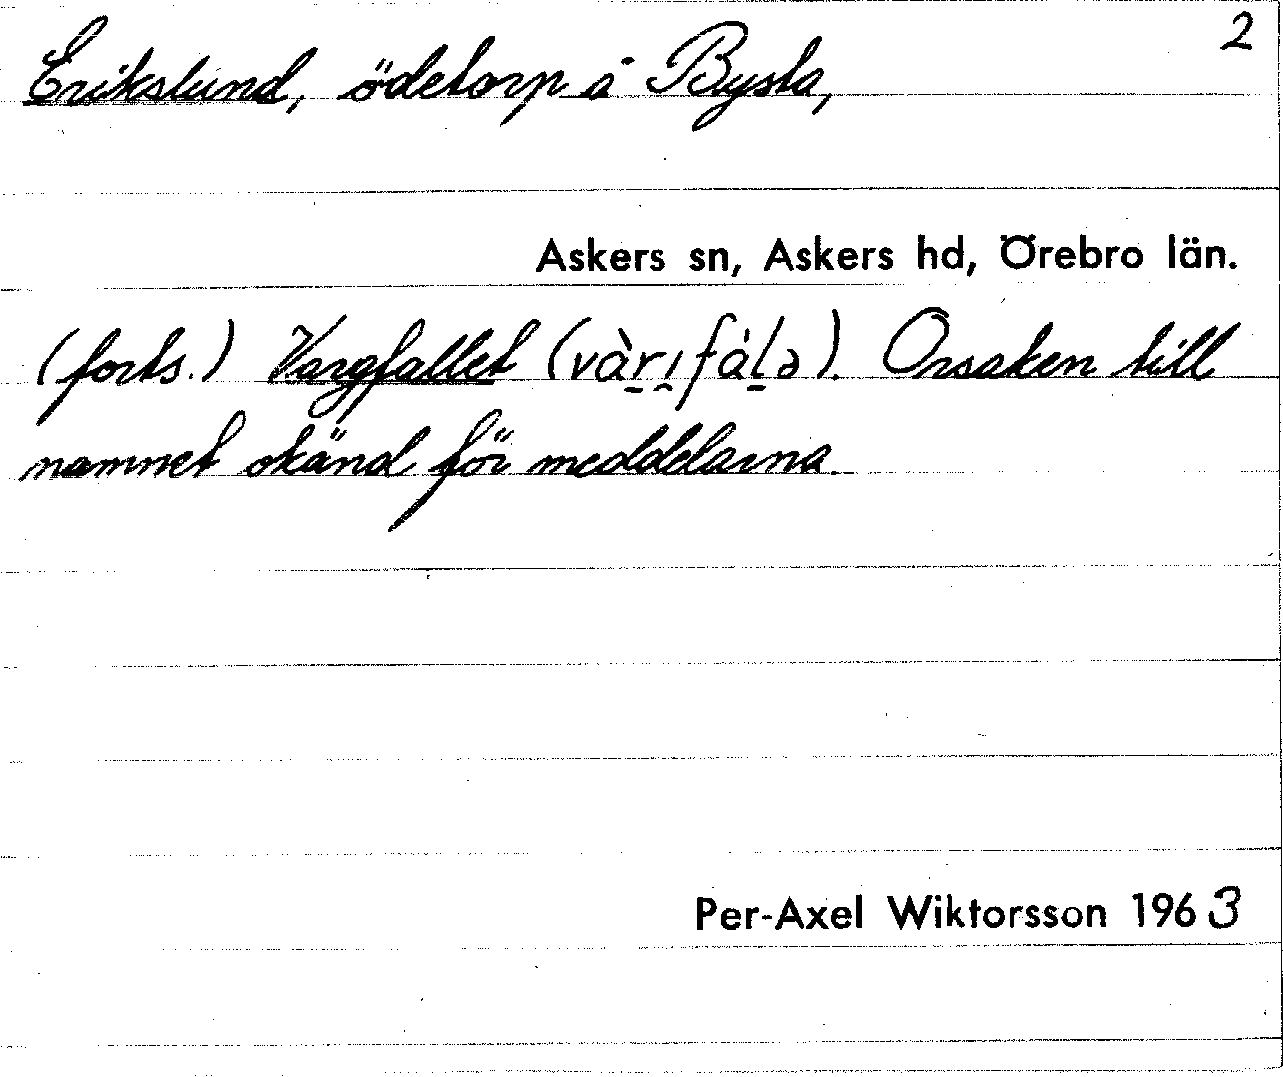 2
Erikslund, ödetorp å Bysta,
Askers sn, Askers hd, Örebro län.
(forts.) Vargfallet (vàr̠ı̰fàl̠ə). Orsaken till
namnet okänd för meddelarna.
Per-Axel Wiktorsson 1963